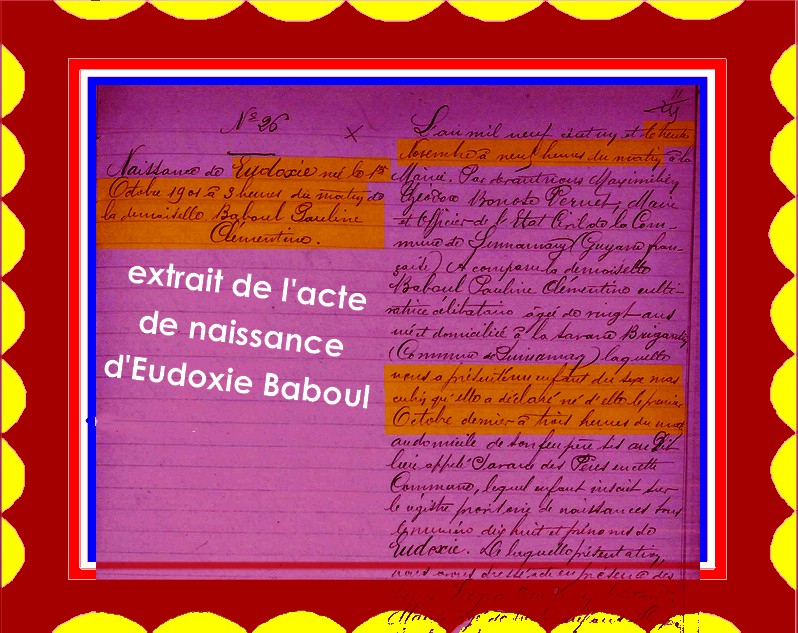 Nº 26
Naissance de Eudoxie né le 1er
Octobre 1901 à 3 heures du matin de
la demoiselle Baboul Pauline
Clémentine.
extrait de l'acte
de naissance
d'Eudoxie Baboul
11
L'an mil neuf cent un et le trente
Novembre à neuf heures du matin à la
Mairie. Par devant nous Maximilien
Théodore Bonose Vernet, Maire
et Officier de l'Etat Civil de la Com-
mune de Sinnamary (Guyane fran-
çaise) A comparu la demoiselle
Baboul Pauline Clémentine culti-
vatrice célibataire âgée de vingt ans
née et domiciliée à la savane Brigandin
(Commune de Sinnamary) laquelle
nous a présenté un enfant du sexe mas
culin qu'elle a déclaré né d'elle le premier
Octobre dernier à trois heures du mat
au domicile de son feu père sis au dit
lieu appelé Savane des Pères en cette
Commune, lequel enfant inscrit sur
le registre provisoire de naissances sous
le numéro dix huit et prénoms de
Eudoxie. De laquelle présentation,
nous avons dressé acte en présence des